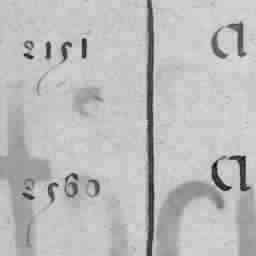 2151 a
2560 a